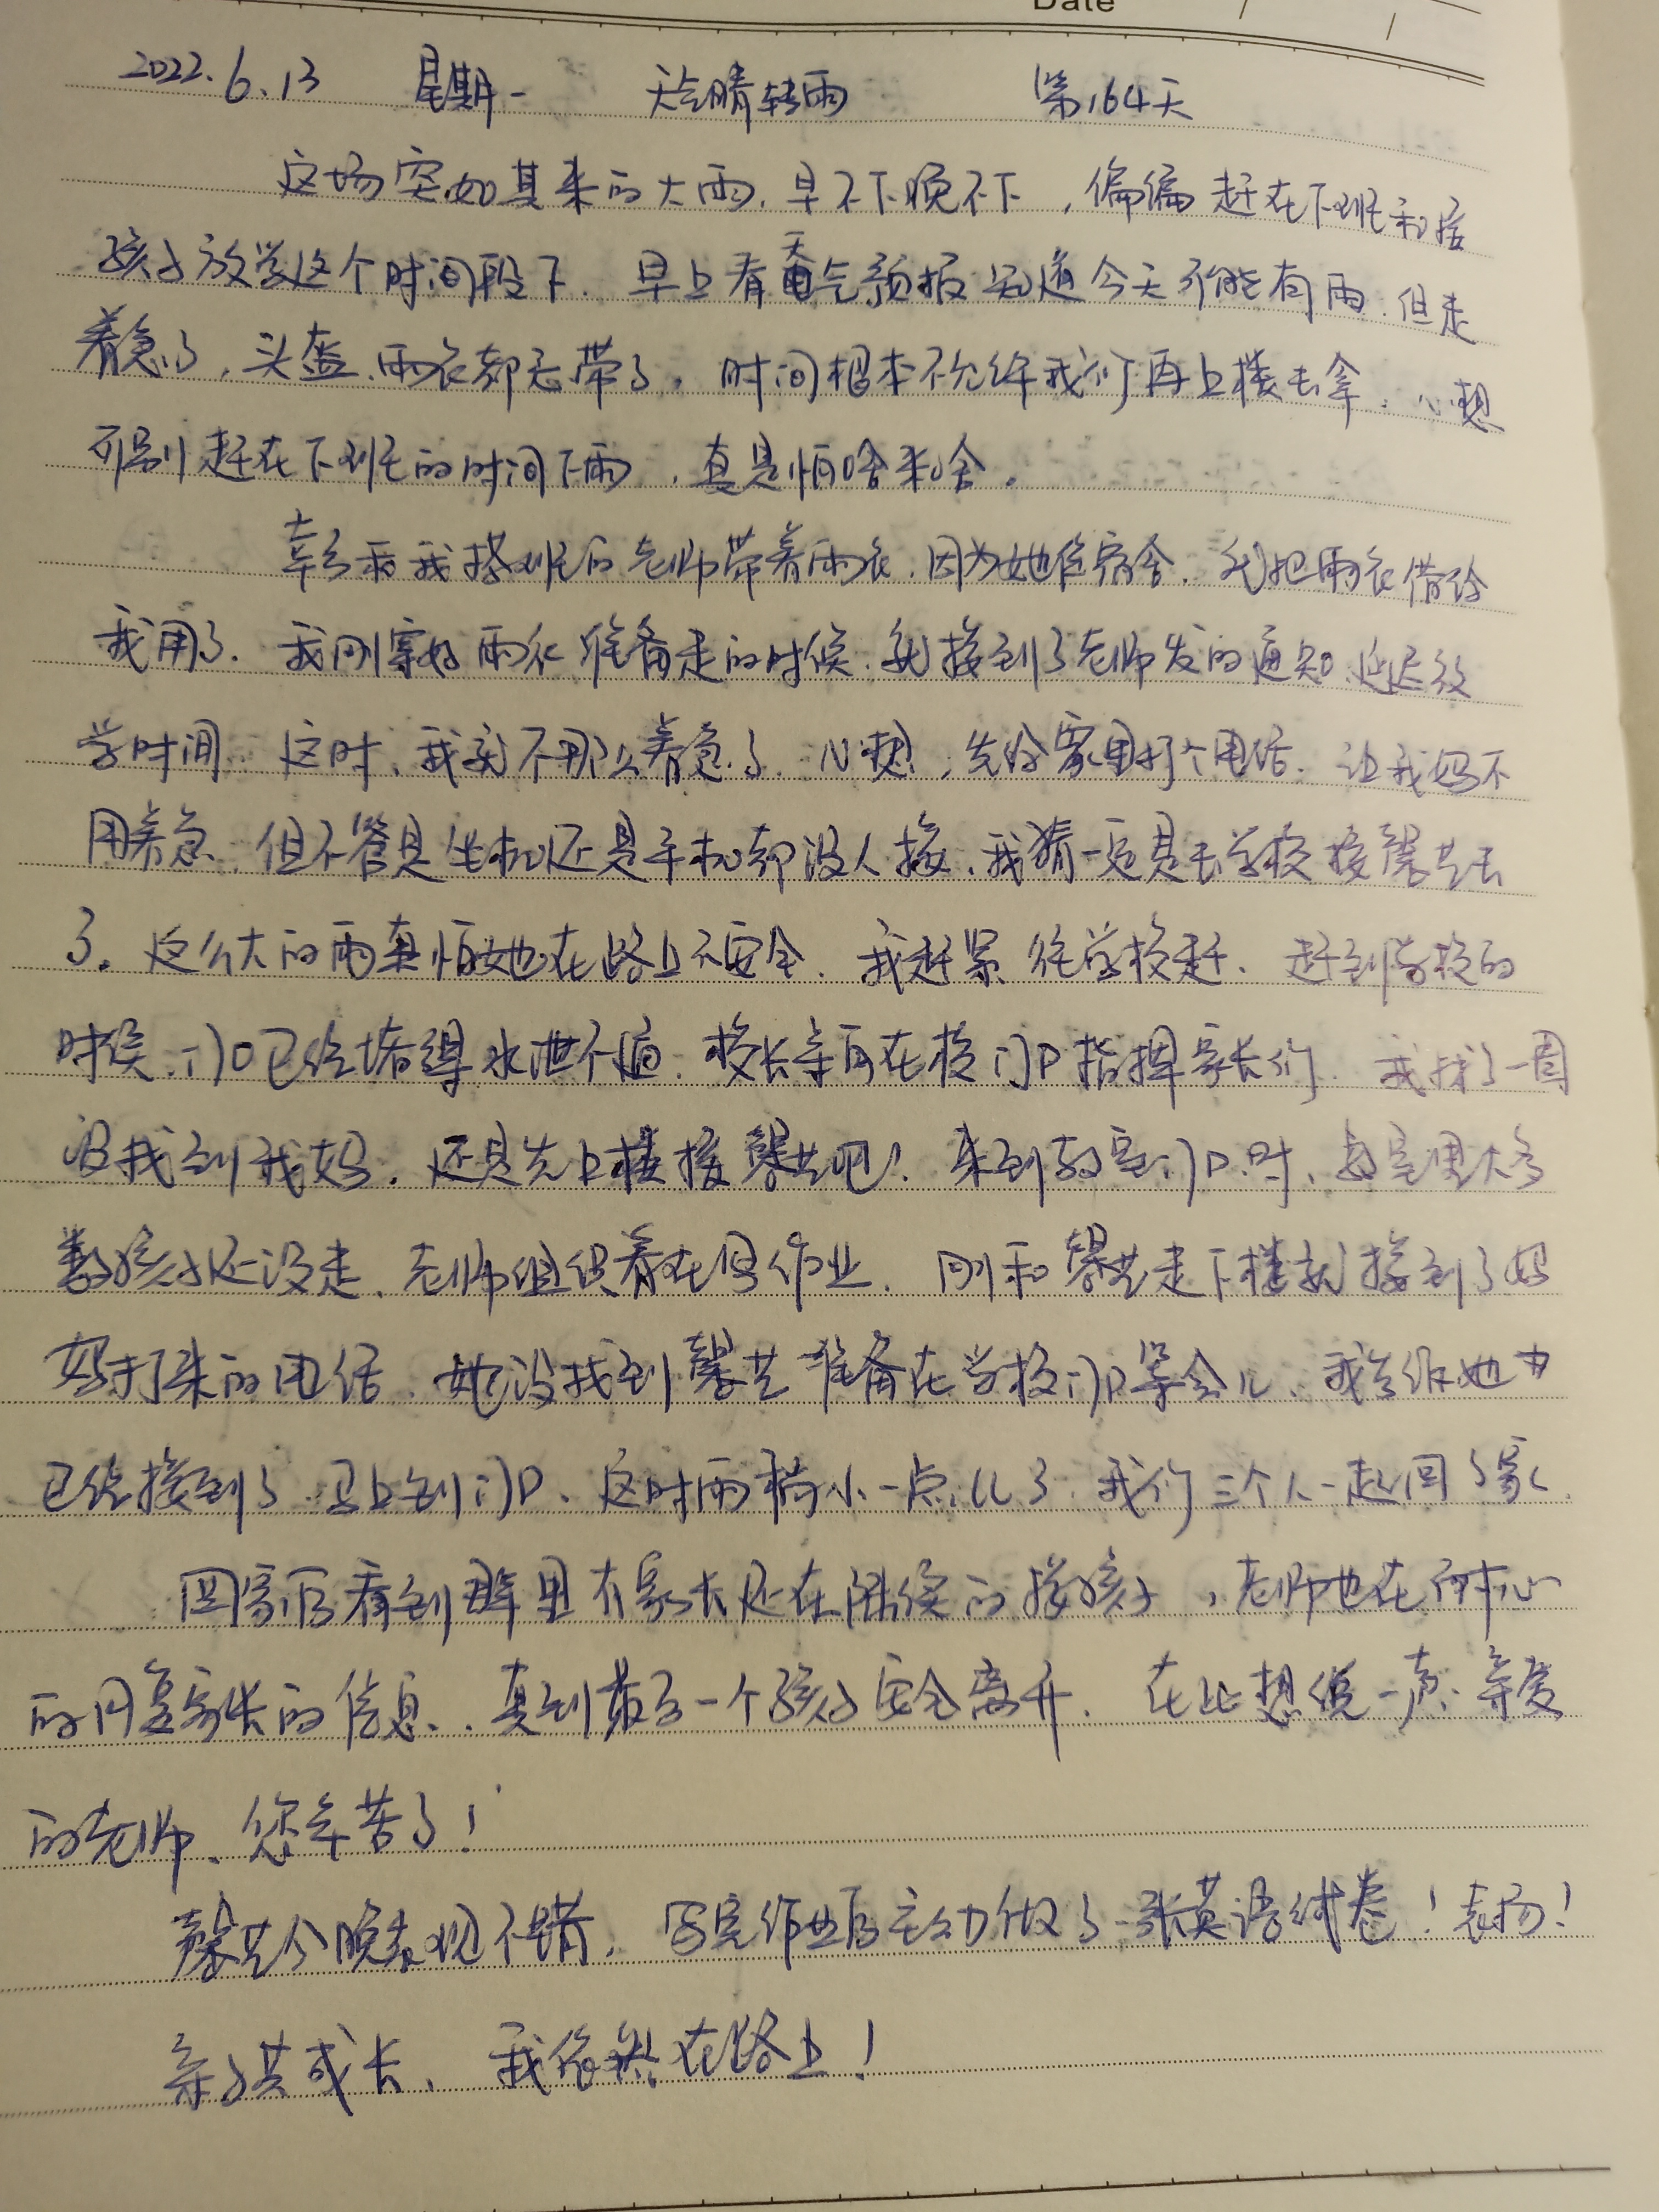 Date
2022.6.13 星期一 天气晴转雨 第164天
这场突如其来的大雨,早不下晚不下,偏偏赶在下班和接
孩子放学这个时间段下.早上看天气预报知道今天可能有雨.但走
着急了,头盔、雨衣都忘带了,时间根本不允许我们再上楼去拿.心想
可别赶在下班的时间下雨,真是怕啥来啥。
幸亏和我搭班的老师带着雨衣,因为她住宿舍,就把雨衣借给
我用了.我刚穿好雨衣准备走的时候.就接到了老师发的通知,延迟放
学时间.这时,我就不那么着急了.心想,先给家里打个电话.让我妈不
用着急.但不管是坐机还是手机都没人接.我猜一定是去学校接馨艺去
了。这么大的雨真怕她在路上不安全.我赶紧往学校赶.赶到学校的
时候,门口已经堵得水泄不通.校长亲自在校门口指挥家长们.我找了一圈
没找到我妈.还是先上楼接馨艺吧!来到教室门口时,教室里大多
数孩子还没走,老师组织着在写作业.刚和馨艺走下楼就接到了妈
妈打来的电话,她没找到馨艺准备在学校门口等会儿、我告诉她
已经接到了.马上到门口、这时雨稍小一点儿了.我们三个人一起回了家.
回家后看到群里有家长还在陆续的接孩子,老师也在耐心
的回复家长的信息.直到最后一个孩子安全离开.在此想说一声:亲爱
的老师、您辛苦了!
馨艺今晚表现不错,写完作业后主动做了一张英语试卷!表扬!
亲子共成长,我依然在路上!